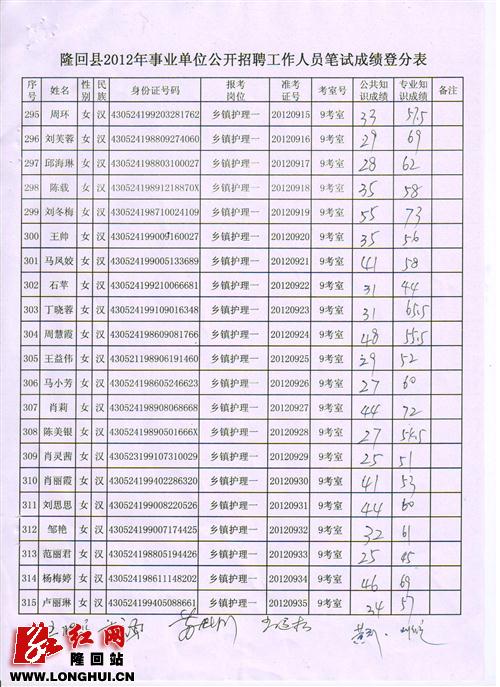 隆回县2012年事业单位公开招聘工作人员笔试成绩登分表
序号 姓名 性别 民族 身份证号码 报考岗位 准考证号 考室号 公共知识成绩 专业知识成绩 备注
295 周环 女 汉 430524199203281762 乡镇护理一 20120915 9考室 33 57.5
296 刘芙蓉 女 汉 430524198809274060 乡镇护理一 20120916 9考室 29 69
297 邱海琳 女 汉 430524198803100027 乡镇护理一 20120917 9考室 28 62
298 陈载 女 汉 43052419891218870X 乡镇护理一 20120918 9考室 35 58
299 刘冬梅 女 汉 430524198710024109 乡镇护理一 20120919 9考室 55 73
300 王帅 女 汉 430524199009160027 乡镇护理一 20120920 9考室 35 56
301 马凤姣 女 汉 430524199005133689 乡镇护理一 20120921 9考室 41 58
302 石苹 女 汉 430524199210066681 乡镇护理一 20120922 9考室 31 44
303 丁晓蓉 女 汉 430524199109016348 乡镇护理一 20120923 9考室 31 65.5
304 周慧霞 女 汉 430524198609081766 乡镇护理一 20120924 9考室 48 55.5
305 王益伟 女 汉 430521198906191460 乡镇护理一 20120925 9考室 29 52
306 马小芳 女 汉 430524198605246623 乡镇护理一 20120926 9考室 27 60
307 肖莉 女 汉 430524198908068668 乡镇护理一 20120927 9考室 44 72
308 陈美银 女 汉 43052419890501666X 乡镇护理一 20120928 9考室 27
309 肖灵茜 女 汉 430523199107310029 乡镇护理一 20120929 9考室 25 51
310 肖丽霞 女 汉 430524199402286320 乡镇护理一 20120930 9考室 41 53
311 刘思思 女 汉 430524199008220526 乡镇护理一 20120931 9考室 44 60
312 邹艳 女 汉 430524199007174425 乡镇护理一 20120932 9考室 32 61
313 范丽君 女 汉 430524198805194426 乡镇护理一 20120933 9考室 25 45
314 杨梅婷 女 汉 430524198611148202 乡镇护理一 20120934 9考室 46 69
315 卢丽琳 女 汉 430524199405088661 乡镇护理一 20120935 9考室 34 57
红网
隆回站
WWW.LONGHUI.CN